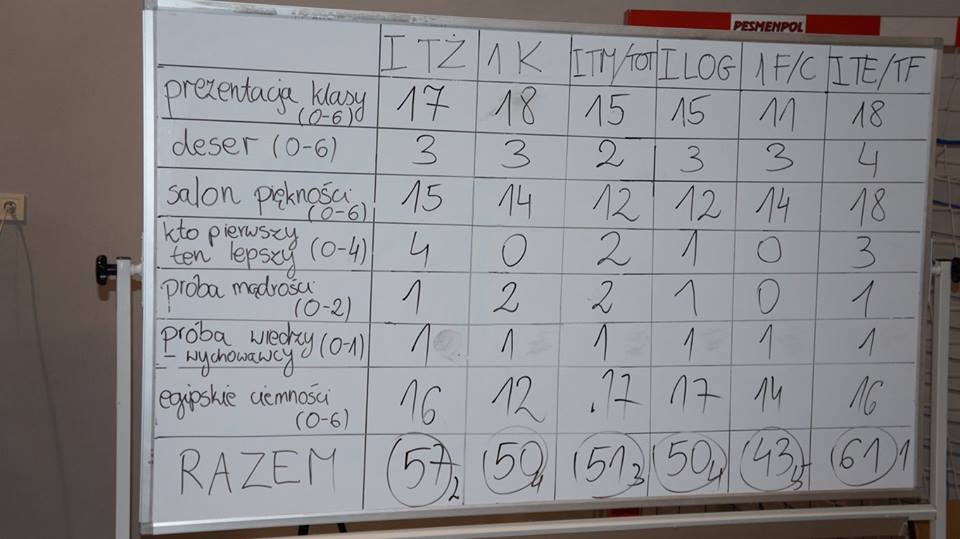 PESMENPOL
I TŻ 1 K I TM/TOT I LOG 1 F/C I TE/TF
prezentacja klasy (0-6) 17 18 15 15 11 18
deser (0-6) 3 3 2 3 3 4
salon piękności (0-6) 15 14 12 12 14 18
kto pierwszy ten lepszy (0-4) 4 0 2 1 0 3
próba mądrości (0-2) 1 2 2 1 0 1
próba wiedzy (0-1) - wychowawcy 1 1 1 1 1 1
egipskie ciemności (0-6) 16 12 17 17 14 16
RAZEM 57 2 50 4 51 3 50 4 43 5 61 1